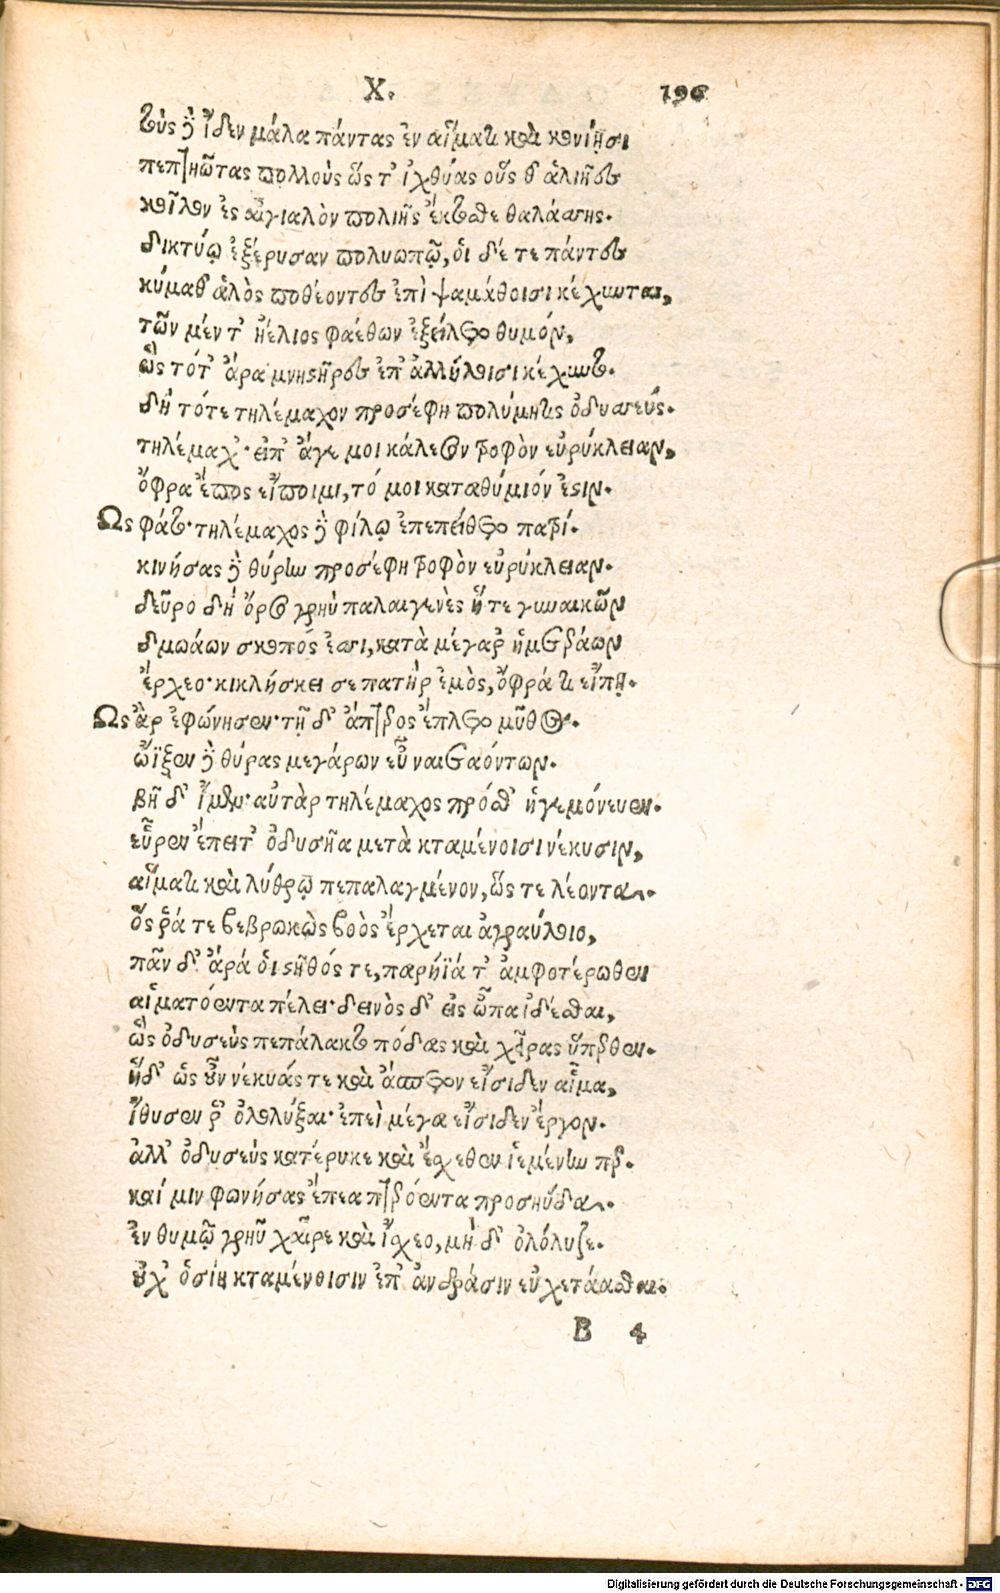 Χ. 196
τοὺς δὲ ἴδεν μάλα πάντας ἐν αἵματι καὶ κονίῃσι
πεπτηῶτας πολλοὺς ὥς τ' ἰχθύας οὕς θ' ἁλιῆες
κοῖλον ἐς αἰγιαλὸν πολιῆς ἔκτοσθε θαλάσσης.
δικτύῳ ἐξέρυσαν πολυωπῷ, ὁι δέ τε πάντες
κύμαθ' ἁλὸς ποθέοντες ἐπὶ ψαμάθοισι κέχυνται,
τῶν μέν τ' ἠέλιος φαέθων ἐξείλετο θυμόν,
ὣς τότ' ἄρα μνηστῆρες ἐπ' ἀλλήλοισι κέχυντο.
δὴ τότε τηλέμαχον προσέφη πολύμητις ὀδυσσεύς.
τηλέμαχ'· εἰπ' ἄγε μοι κάλεσον τροφὸν εὐρύκλειαν,
ὄφρα ἔπος εἴποιμι, τό μοι καταθύμιόν ἐστιν.
Ως φάτο· τηλέμαχος δὲ φίλῳ ἐπεπείθετο πατρί.
κινήσας δὲ θύρην προσέφη τροφὸν εὐρύκλειαν.
δεῦρο δὴ ὄρσο γρηὺ παλαιγενὲς ἥ τε γυναικῶν
δμωάων σκοπός ἐσσι, κατὰ μέγαρ' ἡμετεράων
ἔρχεο· κικλήσκει σε πατὴρ ἐμὸς, ὄφρά τι εἴπῃ.
Ως ἂρ ἐφώνησεν· τῇ δ' ἄπτερος ἔπλετο μῦθος.
ὤϊξεν δὲ θύρας μεγάρων εὖ ναιεταόντων.
βῆ δ' ἴμεν· αὐτὰρ τηλέμαχος πρόσθ' ἡγεμόνευεν.
εὗρεν ἔπειτ' ὀδυσῆα μετὰ κταμένοισι νέκυσιν,
αἵματι καὶ λύθρῳ πεπαλαγμένον, ὥς τε λέοντα.
ὅς ῥά τε βεβρωκὼς βοὸς ἔρχεται ἀγραύλοιο,
πᾶν δ' ἄρά ὁι στῆθός τε, παρήϊά τ' ἀμφοτέρωθεν
αἱματόεντα πέλει· δεινὸς δ' εἰς ὦπα ἰδέσθαι,
ὣς ὀδυσεὺς πεπάλακτο πόδας καὶ χεῖρας ὕπερθεν.
ἥδ' ὡς οὖν νέκυάς τε καὶ ἄσπετον εἴσιδεν αἷμα,
ἴθυσεν ῥ' ὀλολύξαι· ἐπεὶ μέγα εἴσιδεν ἔργον.
ἀλλ' ὀδυσεὺς κατέρυκε καὶ ἔσχεθεν ἱεμένην περ.
καί μιν φωνήσας ἔπεα πτερόεντα προσηύδα.
ἐν θυμῷ γρηῦ χαῖρε καὶ ἴσχεο, μὴ δ' ὀλόλυζε.
οὐχ' ὁσίη κταμένοισιν ἐπ' ἀνδράσιν εὐχετάασθαι.
B 4
Digitalisierung gefördert durch die Deutsche Forschungsgemeinschaft - DFG